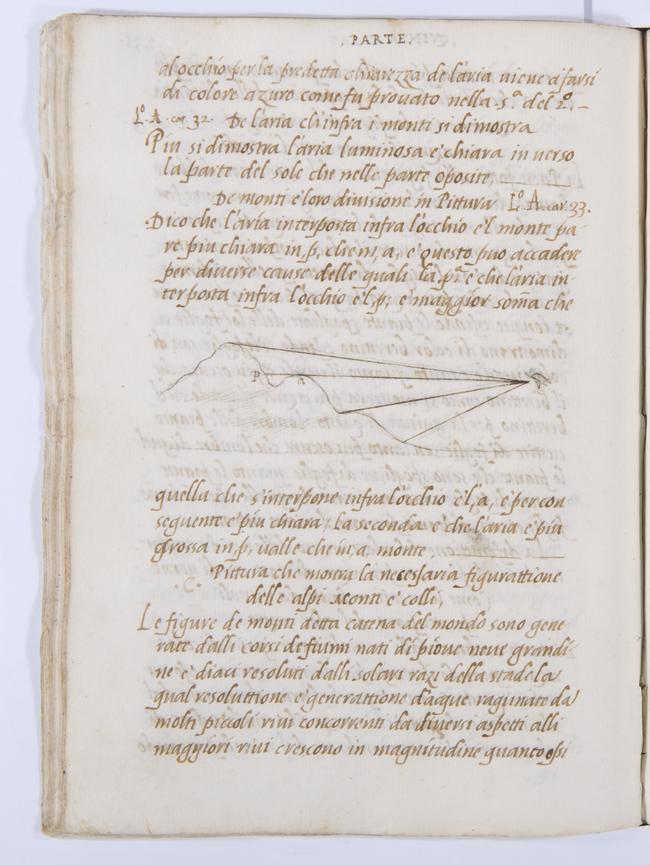 .PARTE.
al occhio per la predetta chiarezza de l'aria viene a farsi
di colore azuro come fu provato nella 5.ª del 2.º –
L.º A. car. 32. De l'aria ch'infra i monti si dimostra
Piu si dimostra l'aria luminosa e' chiara in verso
la parte del sole che nelle parte oposite
De monti e' loro divisione in Pittura L.º A. car. 33.
Dico che l'aria interposta infra l'occhio e'l monte pa-
re piu chiara in, p, che in, a, e' questo puo accadere
per diverse cause delle quali la p.ª e' che l'aria in-
terposta infra l'occhio e'l, p, e' maggior soma che
P a
quella che s'interpone infra l'occhio e'l, a, e' per con
seguente e' piu chiara, la seconda e' che l'aria e' piu
grossa in, p, valle che in, a, monte
Pittura che mostra la necessaria figurattione
delle alpi monti e' colli,
Le figure de monti detta catena del mondo sono gene
rate dalli corsi de fiumi nati di piove neve grandi-
ne e' diaci resoluti dalli solari razi della state la
qual resoluttione e' generattione d'acque ragunate da
molti piccoli rivi concorrenti da diversi aspetti alli
maggiori rivi crescono in magnitudine quanto essi